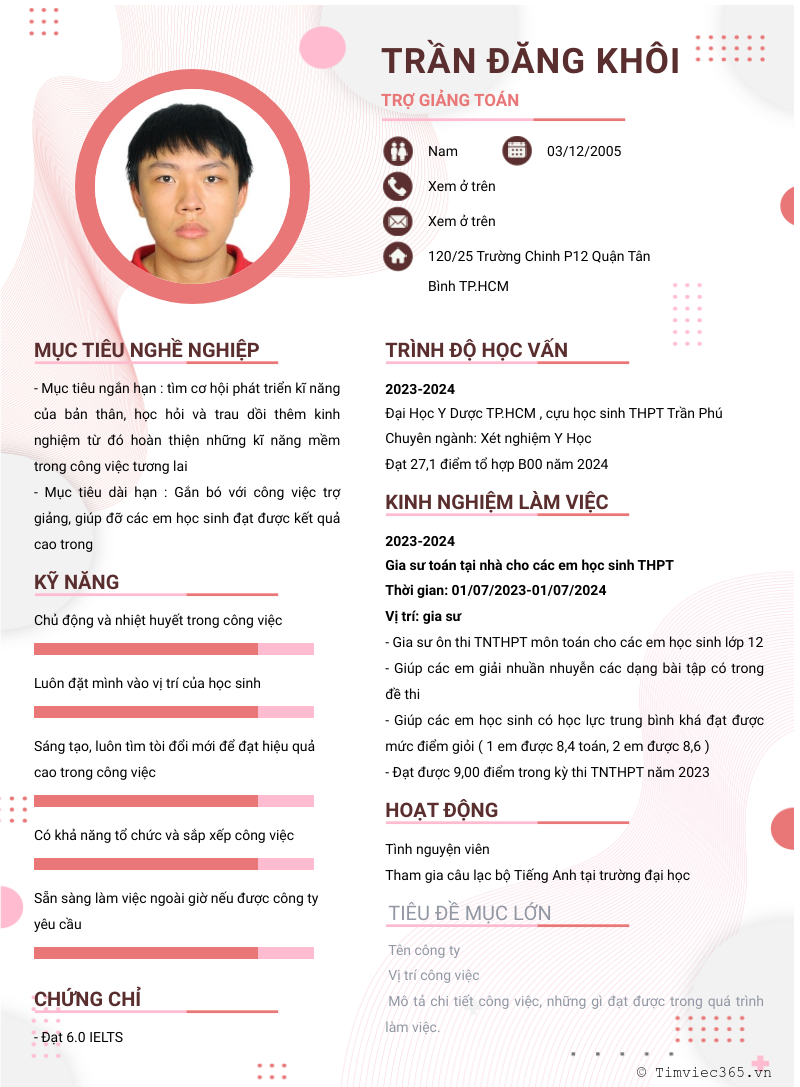 TRẦN ĐĂNG KHÔI
TRỢ GIẢNG TOÁN
Nam
03/12/2005
Xem ở trên
Xem ở trên
120/25 Trường Chinh P12 Quận Tân
Bình TP.HCM
MỤC TIÊU NGHỀ NGHIỆP
- Mục tiêu ngắn hạn : tìm cơ hội phát triển kĩ năng
của bản thân, học hỏi và trau dồi thêm kinh
nghiệm từ đó hoàn thiện những kĩ năng mềm
trong công việc tương lai
- Mục tiêu dài hạn : Gắn bó với công việc trợ
giảng, giúp đỡ các em học sinh đạt được kết quả
cao trong
KỸ NĂNG
Chủ động và nhiệt huyết trong công việc
Luôn đặt mình vào vị trí của học sinh
Sáng tạo, luôn tìm tòi đổi mới để đạt hiệu quả
cao trong công việc
Có khả năng tổ chức và sắp xếp công việc
Sẵn sàng làm việc ngoài giờ nếu được công ty
yêu cầu
CHỨNG CHỈ
- Đạt 6.0 IELTS
TRÌNH ĐỘ HỌC VẤN
2023-2024
Đại Học Y Dược TP.HCM , cựu học sinh THPT Trần Phú
Chuyên ngành: Xét nghiệm Y Học
Đạt 27,1 điểm tổ hợp B00 năm 2024
KINH NGHIỆM LÀM VIỆC
2023-2024
Gia sư toán tại nhà cho các em học sinh THPT
Thời gian: 01/07/2023-01/07/2024
Vị trí: gia sư
- Gia sư ôn thi TNTHPT môn toán cho các em học sinh lớp 12
- Giúp các em giải nhuần nhuyễn các dạng bài tập có trong
đề thi
- Giúp các em học sinh có học lực trung bình khá đạt được
mức điểm giỏi ( 1 em được 8,4 toán, 2 em được 8,6 )
- Đạt được 9,00 điểm trong kỳ thi TNTHPT năm 2023
HOẠT ĐỘNG
Tình nguyện viên
Tham gia câu lạc bộ Tiếng Anh tại trường đại học
TIÊU ĐỀ MỤC LỚN
Tên công ty
Vị trí công việc
Mô tả chi tiết công việc, những gì đạt được trong quá trình
làm việc.
© Timviec365.vn